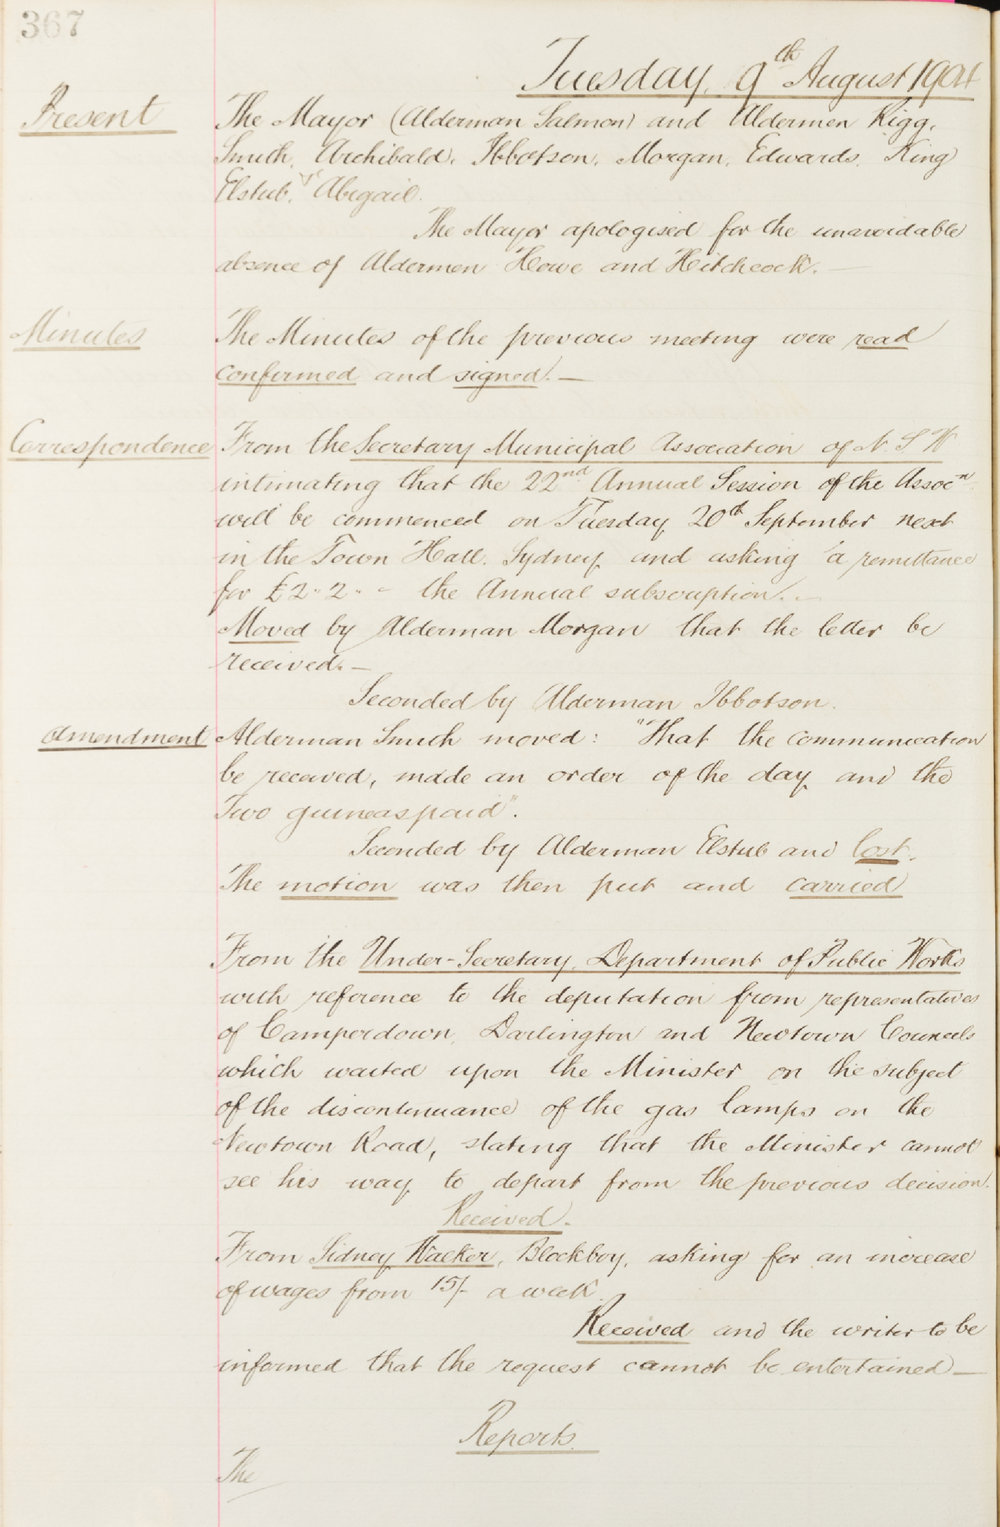 367
Tuesday, 9th August 1904
Present
The Mayor (Alderman Salmon) and Aldermen Rigg,
Smith, Archibald, Ibbotson, Morgan, Edwards, King
Elstub, & Abigail.
The Mayor apologised for the unavoidable
absence of Aldermen Howe and Hitchcock. —
Minutes
The Minutes of the previous meeting were read
confirmed and signed. —
Correspondence
From the Secretary Municipal Association of N. S. W
intimating that the 22nd Annual Session of the Assocn
will be commenced on Tuesday 20th September next
in the Town Hall, Sydney and asking a remittance
for £2. 2. - the Annual subscription. —
Moved by Alderman Morgan that the letter be
received. —
Seconded by Alderman Ibbotson.
Amendment
Alderman Smith moved: "That the communication
be received, made an order of the day and the
Two guineas paid".
Seconded by Alderman Elstub and lost.
The motion was then put and carried
From the Under-Secretary, Department of Public Works
with reference to the deputation from representatives
of Camperdown, Darlington and Newtown Councils
which waited upon the Minister on the subject
of the discontinuance of the gas lamps on the
Newtown Road, stating that the Minister cannot
see his way to depart from the previous decision.
Received.
From Sidney Hacker, Blockboy, asking for an increase
of wages from 15/- a week.
Received and the writer to be
informed that the request cannot be entertained —
Reports.
The